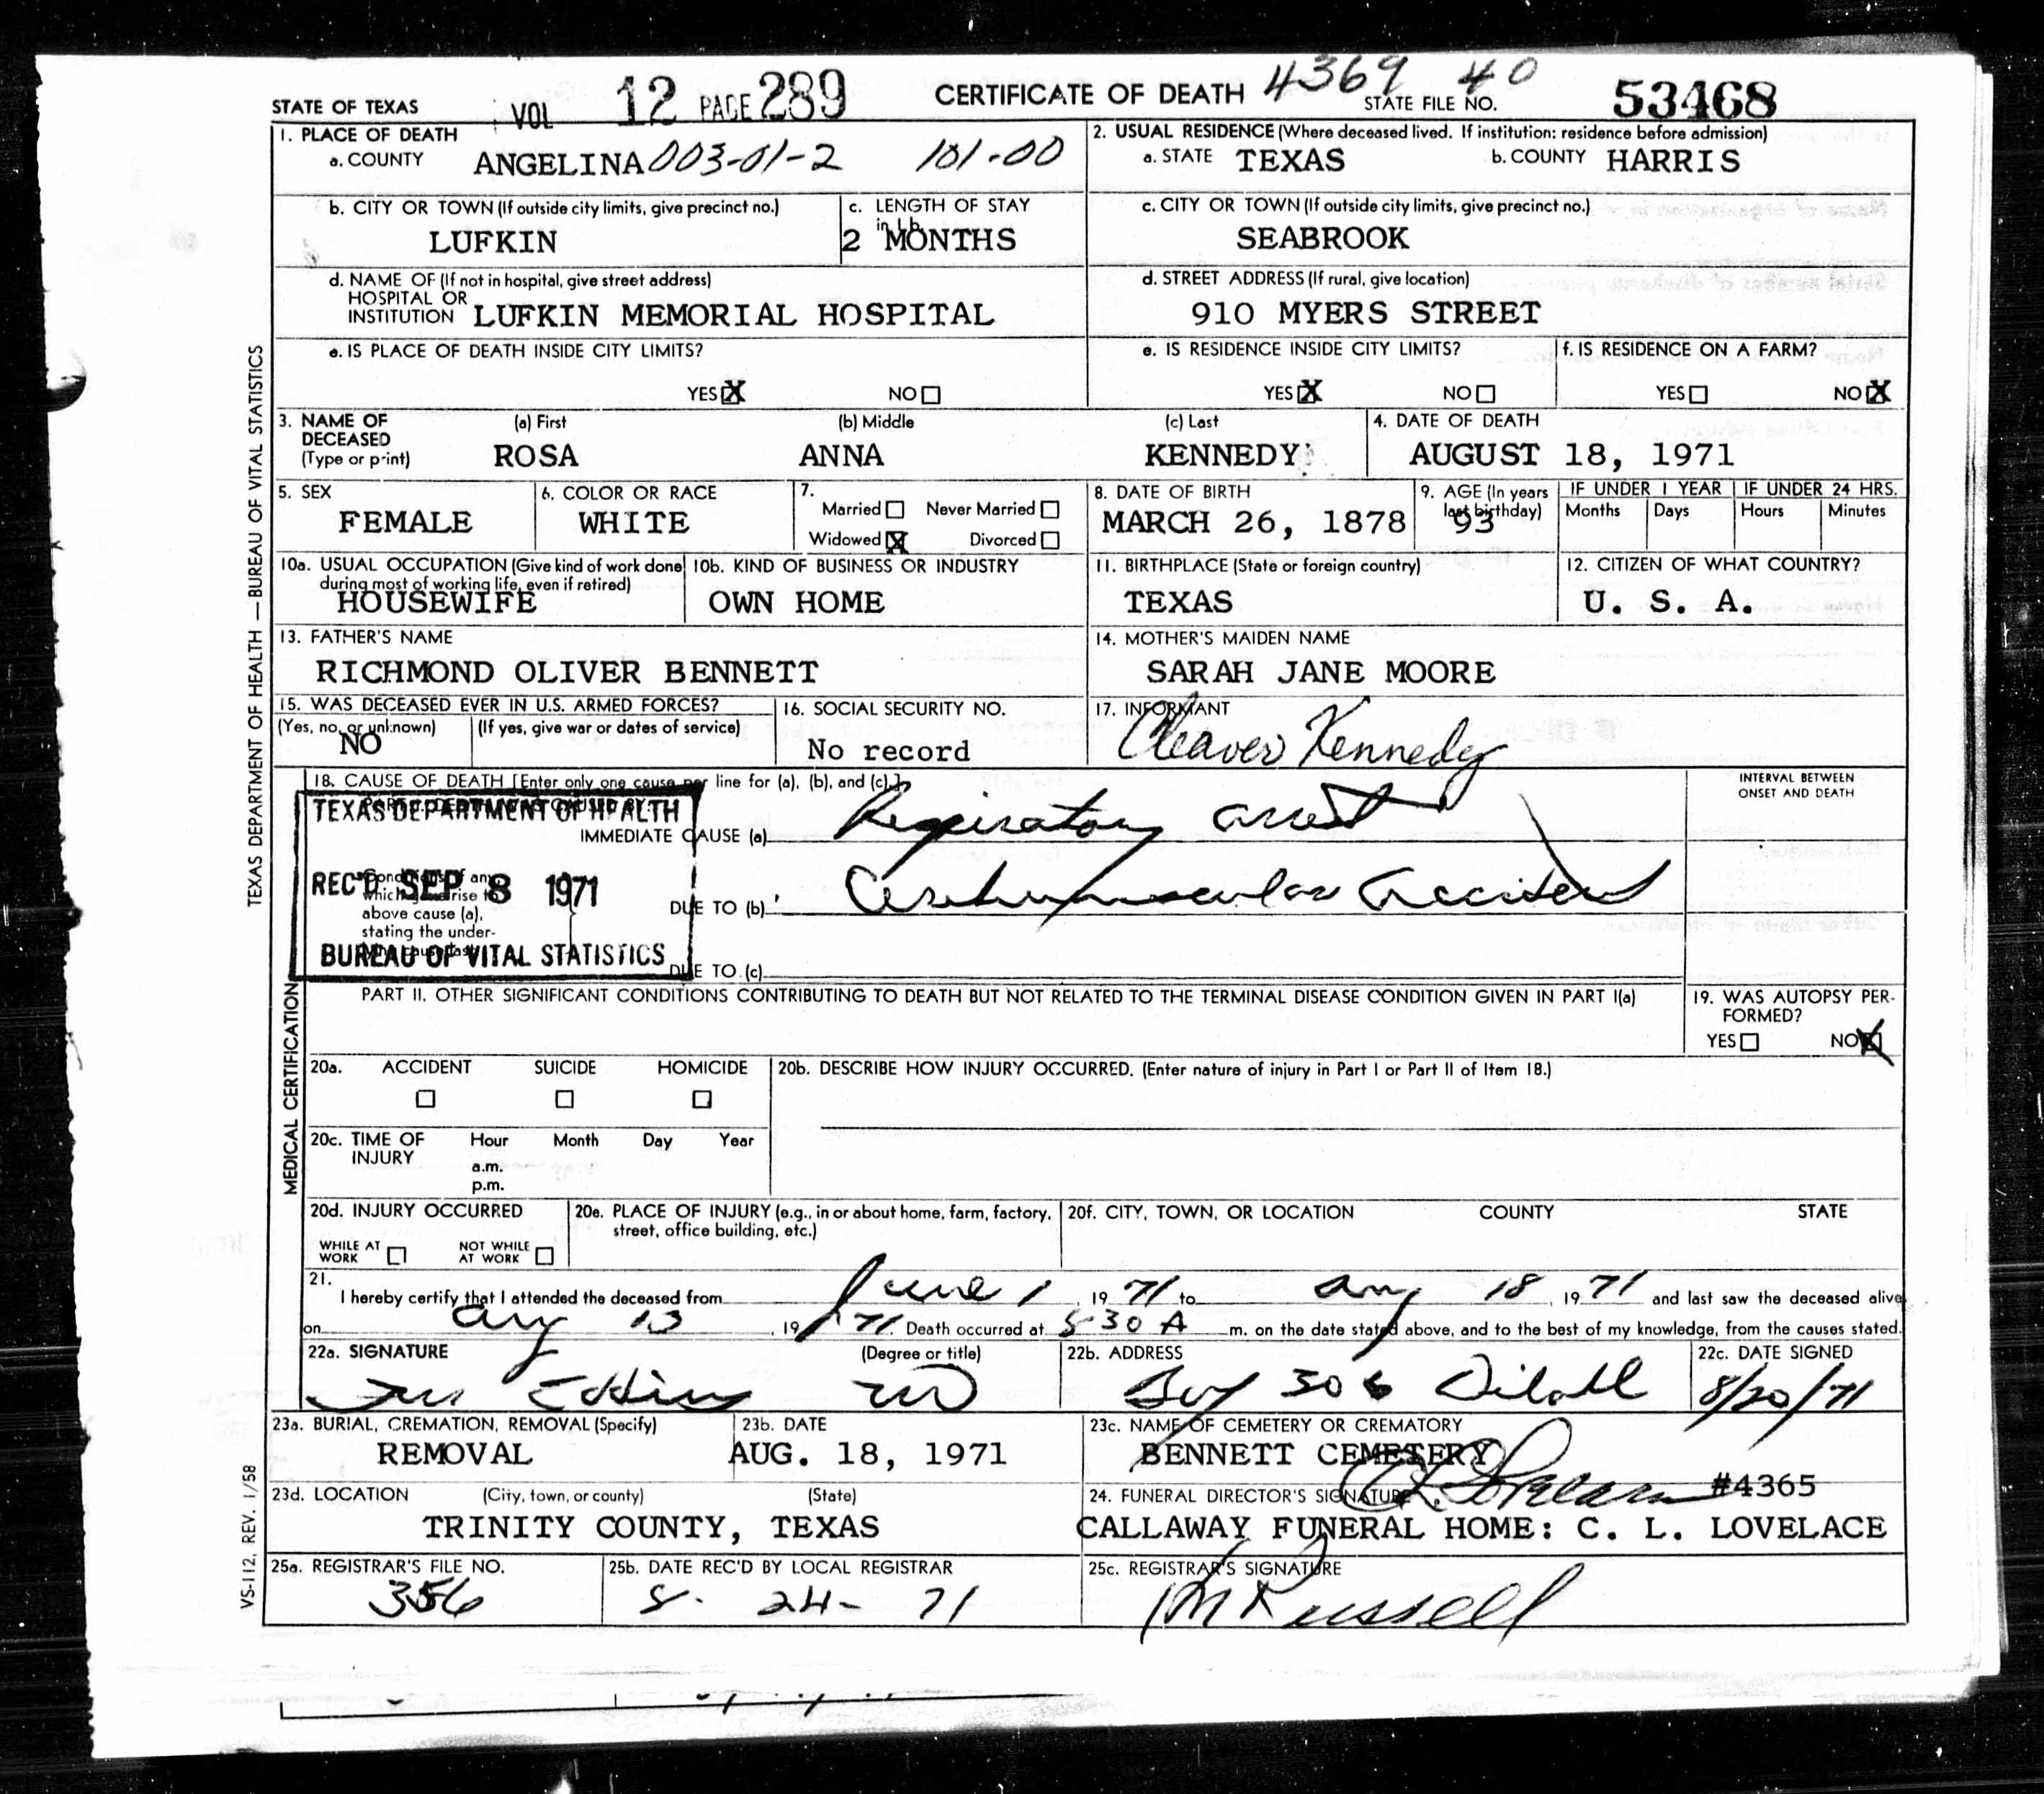 STATE OF TEXAS VOL 12 PAGE 289 CERTIFICATE OF DEATH 4369 40 STATE FILE NO. 53468
1. PLACE OF DEATH
a. COUNTY ANGELINA 003-01-2 101-00
2. USUAL RESIDENCE (Where deceased lived. If institution: residence before admission)
a. STATE TEXAS b. COUNTY HARRIS
b. CITY OR TOWN (If outside city limits, give precinct no.)
LUFKIN
c. LENGTH OF STAY
in 1b
2 MONTHS
c. CITY OR TOWN (If outside city limits, give precinct no.)
SEABROOK
d. NAME OF (If not in hospital, give street address)
HOSPITAL OR
INSTITUTION LUFKIN MEMORIAL HOSPITAL
d. STREET ADDRESS (If rural, give location)
910 MYERS STREET
e. IS PLACE OF DEATH INSIDE CITY LIMITS?
YES X NO
e. IS RESIDENCE INSIDE CITY LIMITS?
YES X NO
f. IS RESIDENCE ON A FARM?
YES NO X
3. NAME OF DECEASED
(Type or print)
(a) First (b) Middle (c) Last
ROSA ANNA KENNEDY
4. DATE OF DEATH
AUGUST 18, 1971
5. SEX
FEMALE
6. COLOR OR RACE
WHITE
7.
Married Never Married
Widowed X Divorced
8. DATE OF BIRTH
MARCH 26, 1878
9. AGE (In years
last birthday)
93
IF UNDER 1 YEAR IF UNDER 24 HRS.
Months Days Hours Minutes
10a. USUAL OCCUPATION (Give kind of work done
during most of working life, even if retired)
HOUSEWIFE
10b. KIND OF BUSINESS OR INDUSTRY
OWN HOME
11. BIRTHPLACE (State or foreign country)
TEXAS
12. CITIZEN OF WHAT COUNTRY?
U. S. A.
13. FATHER'S NAME
RICHMOND OLIVER BENNETT
14. MOTHER'S MAIDEN NAME
SARAH JANE MOORE
15. WAS DECEASED EVER IN U.S. ARMED FORCES?
(Yes, no, or unknown) (If yes, give war or dates of service)
NO
16. SOCIAL SECURITY NO.
No record
17. INFORMANT
Cleaver Kennedy
18. CAUSE OF DEATH [Enter only one cause per line for (a), (b), and (c).]
INTERVAL BETWEEN
ONSET AND DEATH
PART I. DEATH WAS CAUSED BY:
TEXAS DEPARTMENT OF HEALTH
REC'D SEP 8 1971
BUREAU OF VITAL STATISTICS
IMMEDIATE CAUSE (a) Respiratory arrest
Conditions, if any,
which gave rise to
above cause (a),
stating the under-
lying cause last.
DUE TO (b) Cerebrovascular accident
DUE TO (c)
PART II. OTHER SIGNIFICANT CONDITIONS CONTRIBUTING TO DEATH BUT NOT RELATED TO THE TERMINAL DISEASE CONDITION GIVEN IN PART I(a)
19. WAS AUTOPSY PER-
FORMED?
YES NO X
20a. ACCIDENT SUICIDE HOMICIDE
20b. DESCRIBE HOW INJURY OCCURRED. (Enter nature of injury in Part I or Part II of Item 18.)
20c. TIME OF INJURY
Hour Month Day Year
a.m.
p.m.
20d. INJURY OCCURRED
WHILE AT WORK NOT WHILE AT WORK
20e. PLACE OF INJURY (e.g., in or about home, farm, factory,
street, office building, etc.)
20f. CITY, TOWN, OR LOCATION COUNTY STATE
21.
I hereby certify that I attended the deceased from June 1, 19 71 to Aug 18, 19 71 and last saw the deceased alive
on Aug 13, 19 71. Death occurred at 5:30 A m. on the date stated above, and to the best of my knowledge, from the causes stated.
22a. SIGNATURE (Degree or title)
MD
22b. ADDRESS
Box 306 Diboll
22c. DATE SIGNED
8/20/71
23a. BURIAL, CREMATION, REMOVAL (Specify)
REMOVAL
23b. DATE
AUG. 18, 1971
23c. NAME OF CEMETERY OR CREMATORY
BENNETT CEMETERY
23d. LOCATION (City, town, or county) (State)
TRINITY COUNTY, TEXAS
24. FUNERAL DIRECTOR'S SIGNATURE #4365
CALLAWAY FUNERAL HOME: C. L. LOVELACE
25a. REGISTRAR'S FILE NO.
356
25b. DATE REC'D BY LOCAL REGISTRAR
8-24-71
25c. REGISTRAR'S SIGNATURE
Russell
TEXAS DEPARTMENT OF HEALTH — BUREAU OF VITAL STATISTICS
MEDICAL CERTIFICATION
VS-112, REV. 1/58